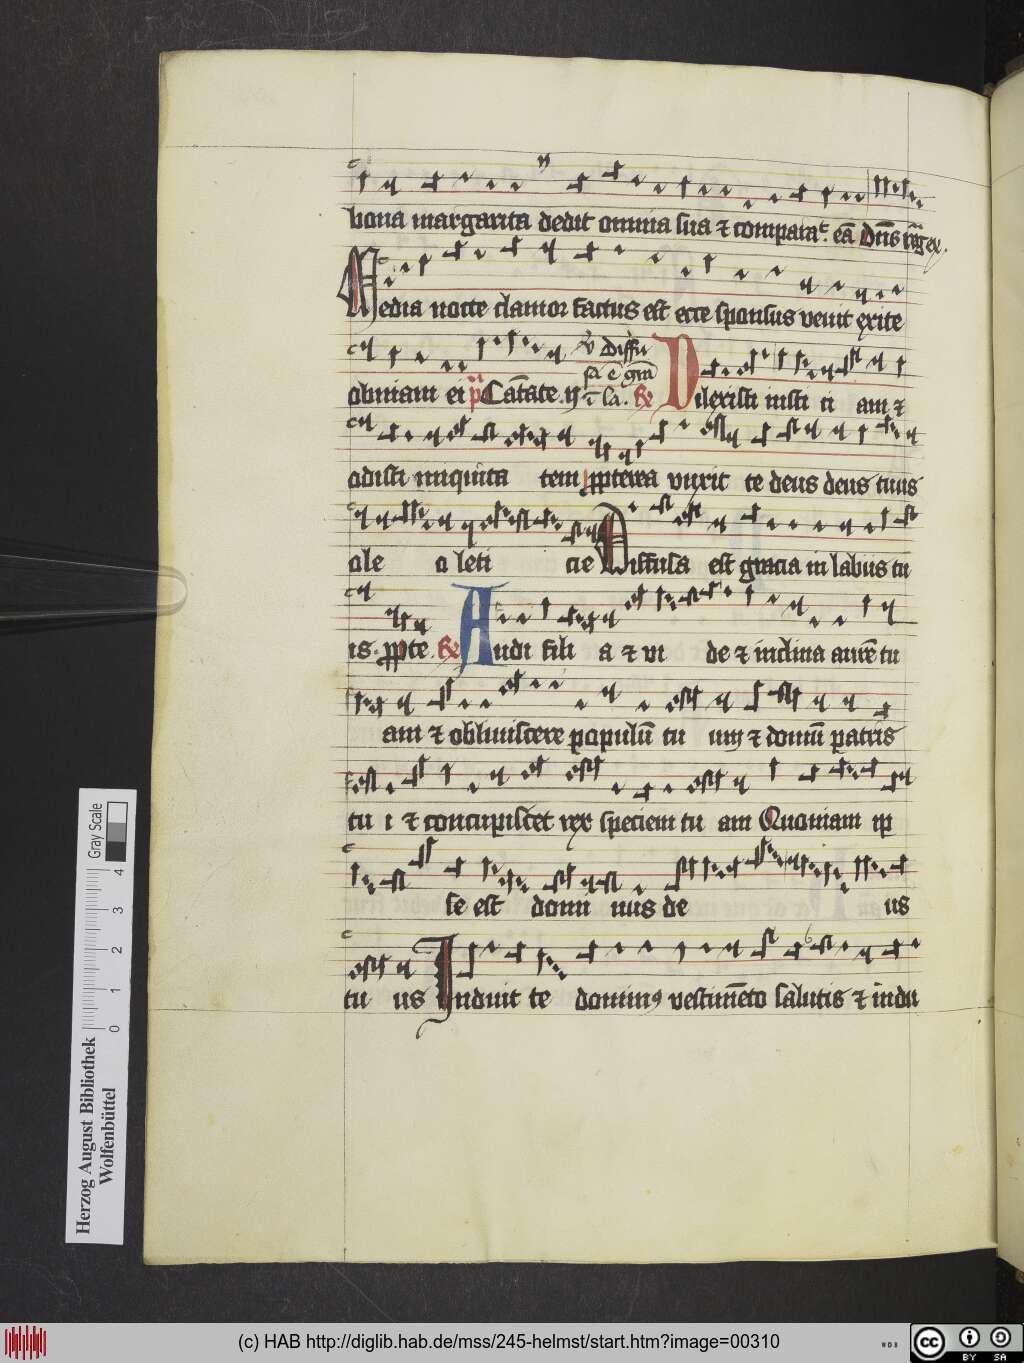 bona margarita dedit omnia sua ⁊ comparat. eā Dn̄s
Media nocte clamor factus est ecce sponsus venit exite
ẜ Diffu
sa ē grā
obuiam ei p̄ Cantate. ij ī la. R̷ Dilexisti iusti ci am ⁊
odisti iniquita tem ppterea vnxit te deus deus tuus
ole o leti cie Diffusa est gracia in labiis tu
is. ppte R̷ Audi fili a ⁊ vi de ⁊ inclina aurē tu
am ⁊ obliuiscere populū tu um ⁊ domū patris
tu i ⁊ concupiscet rex speciem tu am Quoniam ip
se est domi nus de us
tu us Induit te dominꝰ vestimēto salutis ⁊ indu
Gray Scale
4
3
2
1
0
Herzog August Bibliothek
Wolfenbüttel
(c) HAB http://diglib.hab.de/mss/245-helmst/start.htm?image=00310
WDB
cc
BY SA